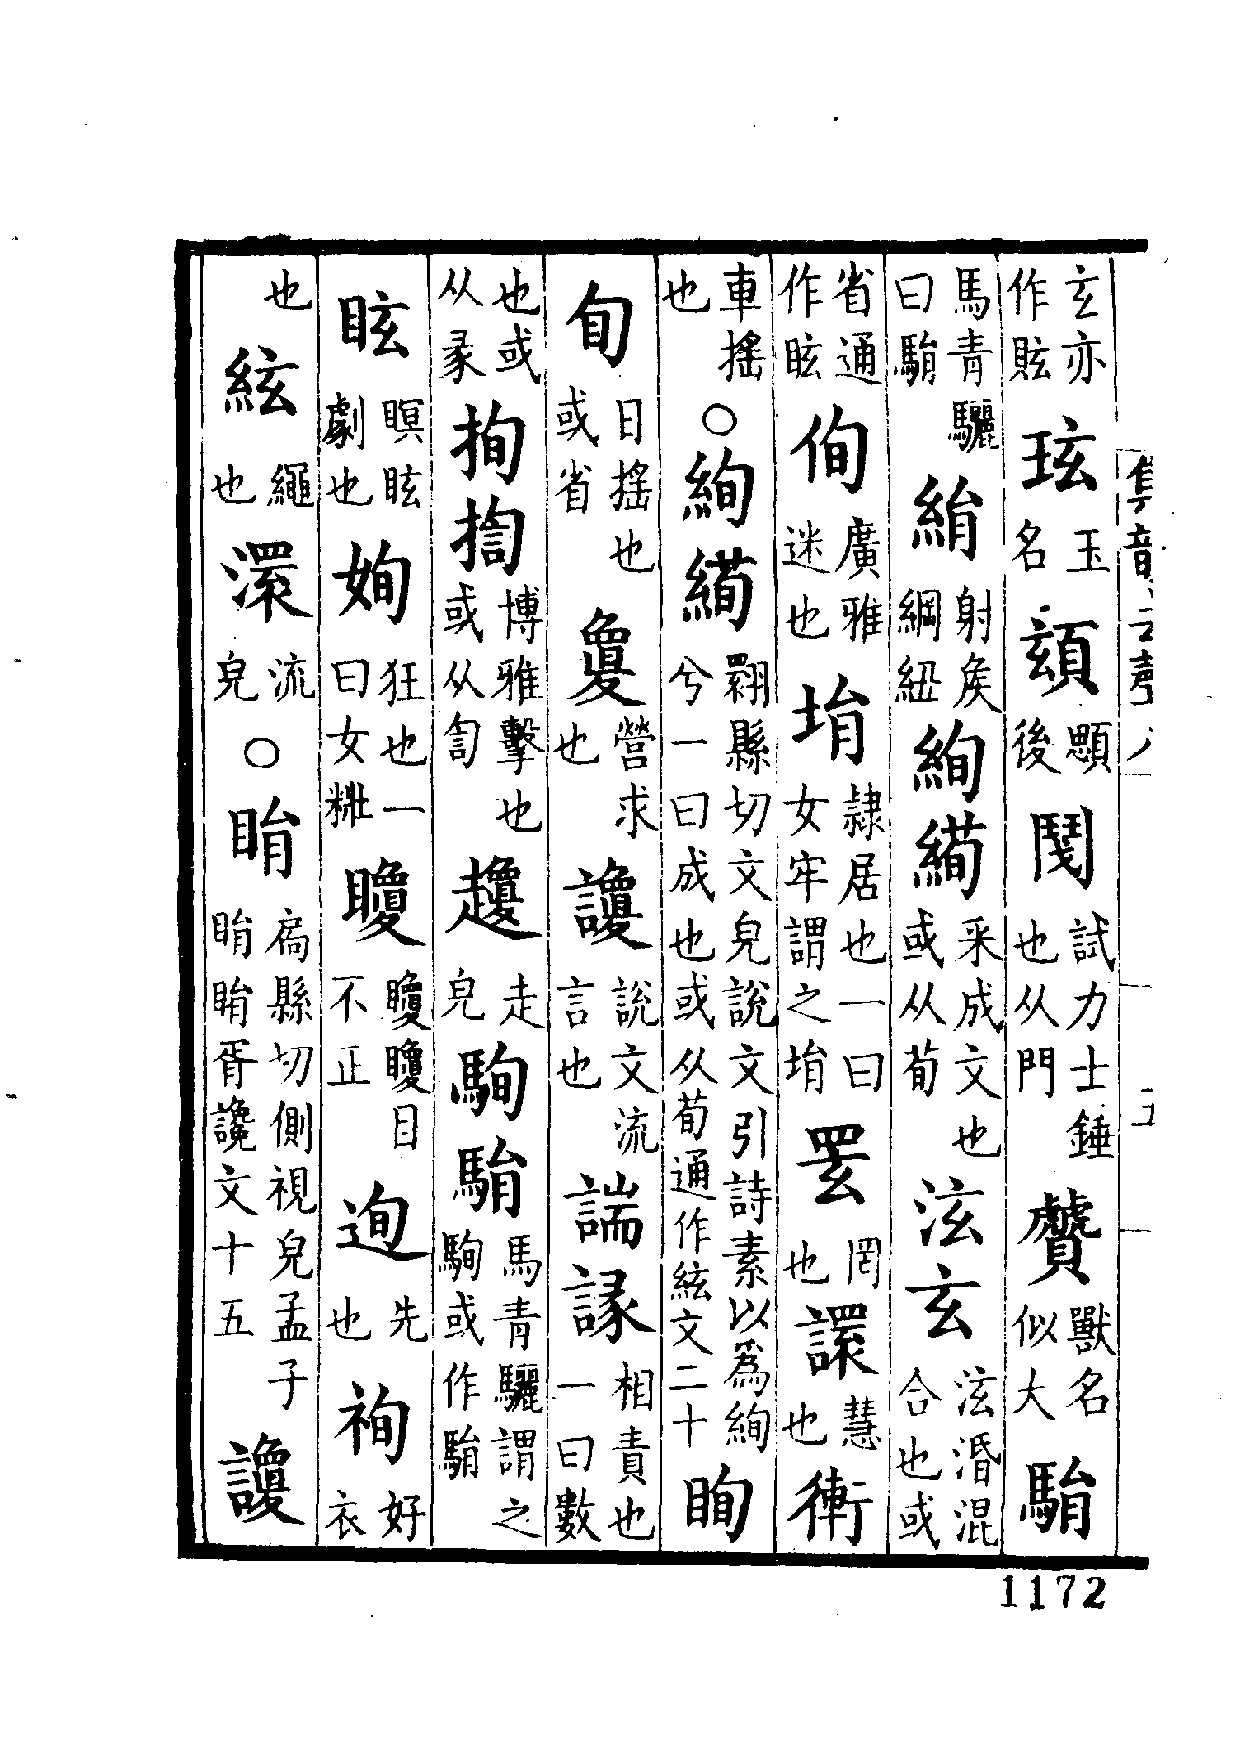 玄亦作眩玹玉名䪗顋後䦧試力士錘也从門贙獸名似犬駽
馬青驪曰駽絹射矦綱紐絢繝采成文也或从荀泫玄泫湣混合也或
省通作眩侚廣雅迷也埍隷居也一曰女牢謂之埍罢罔也譞慧也衒
車搖也○絢繝翾縣切文皃說文引詩素以爲絢兮一曰成也或从荀通作絃文二十眴
旬目搖也或省敻營求也讂說文流言也諯䛄相責也一曰數
也或从彖拘揈博雅擊也或从訇趰走皃駒駽馬青驪謂之駒或作駽
眩瞑眩劇也姰狂也一曰女𥹝矎矎矎目不正迿先也袧好衣
也絃繩也澴流皃○睊扃縣切側視皃孟子睊睊胥讒文十五讂
集韻去聲八
五
1172